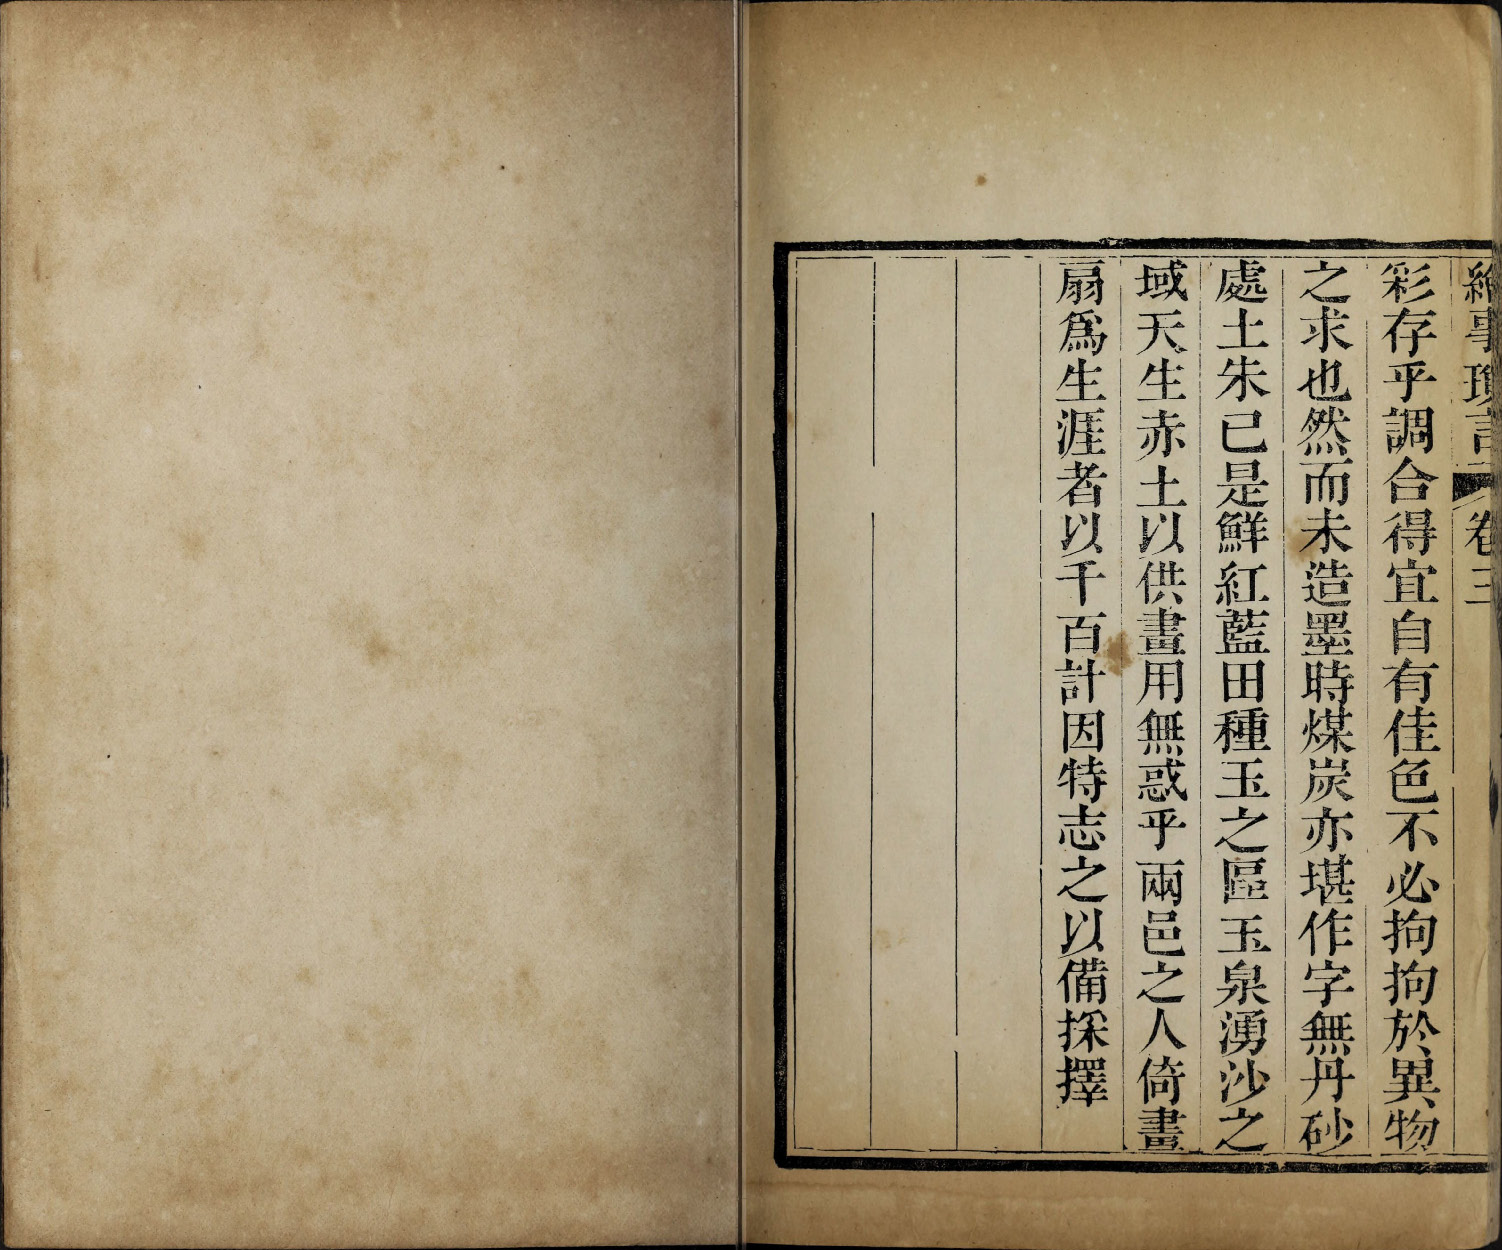 繪事瑣言 卷三
彩存乎調合得宜自有佳色不必拘拘於異物
之求也然而未造墨時煤炭亦堪作字無丹砂
處土朱已是鮮紅藍田種玉之區玉泉湧沙之
域天生赤土以供畫用無惑乎兩邑之人倚畫
扇爲生涯者以千百計因特志之以備採擇